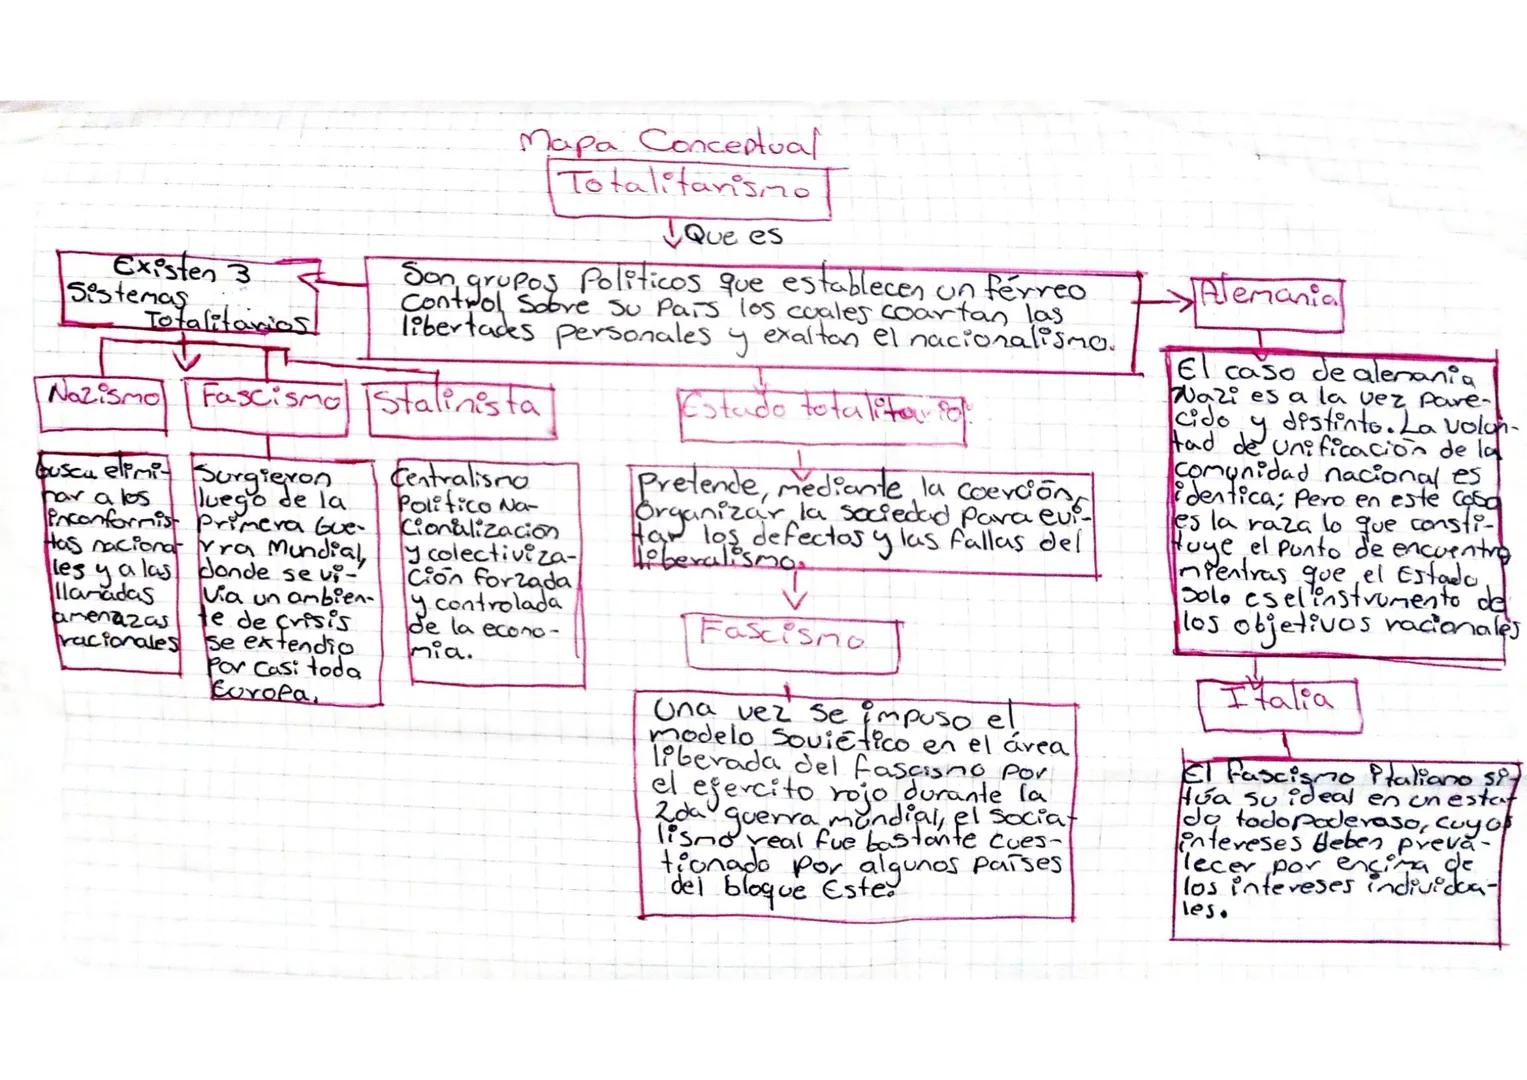 Mapa Conceptual
Totalitarismo
Que es
Existen 3
Sistemas
Totalitarios
Son grupos Políticos que establecen un férreo
Control Sobre su País los cuales coartan las
libertades personales y exaltan el nacionalismo.
Nazismo
Fascismo
Stalinista
busca elimi-
nar a los
inconformis-
tas naciona-
les y a las
llamadas
amenazas
racionales
Surgieron
luego de la
Primera Gue-
rra Mundial,
donde se vi-
vía un ambien-
te de crisis
se extendio
Por casi toda
Europa.
Centralismo
Político Na-
cionalización
y colectiviza-
ción forzada
y controlada
de la econo-
mia.
Estado totalitario
Pretende, mediante la coerción,
Organizar la sociedad para evi-
tar los defectos y las fallas del
liberalismo.
Fascismo
Una vez se impuso el
modelo Soviético en el área
liberada del fascismo por
el ejercito rojo durante la
2da guerra mundial, el socia-
lismo real fue bastante cues-
tionado por algunos países
del bloque Este.
Alemania
El caso de alemania
Nazi es a la vez pare-
cido y distinto. La volun-
tad de unificación de la
comunidad nacional es
identica; Pero en este caso
es la raza lo que consti-
tuye el punto de encuentro
mientras que el Estado
solo es el instrumento de
los objetivos racionales
Italia
El fascismo italiano si-
túa su ideal en un esta-
do todopoderoso, cuyos
intereses deben preva-
lecer por encima de
los intereses individua-
les.